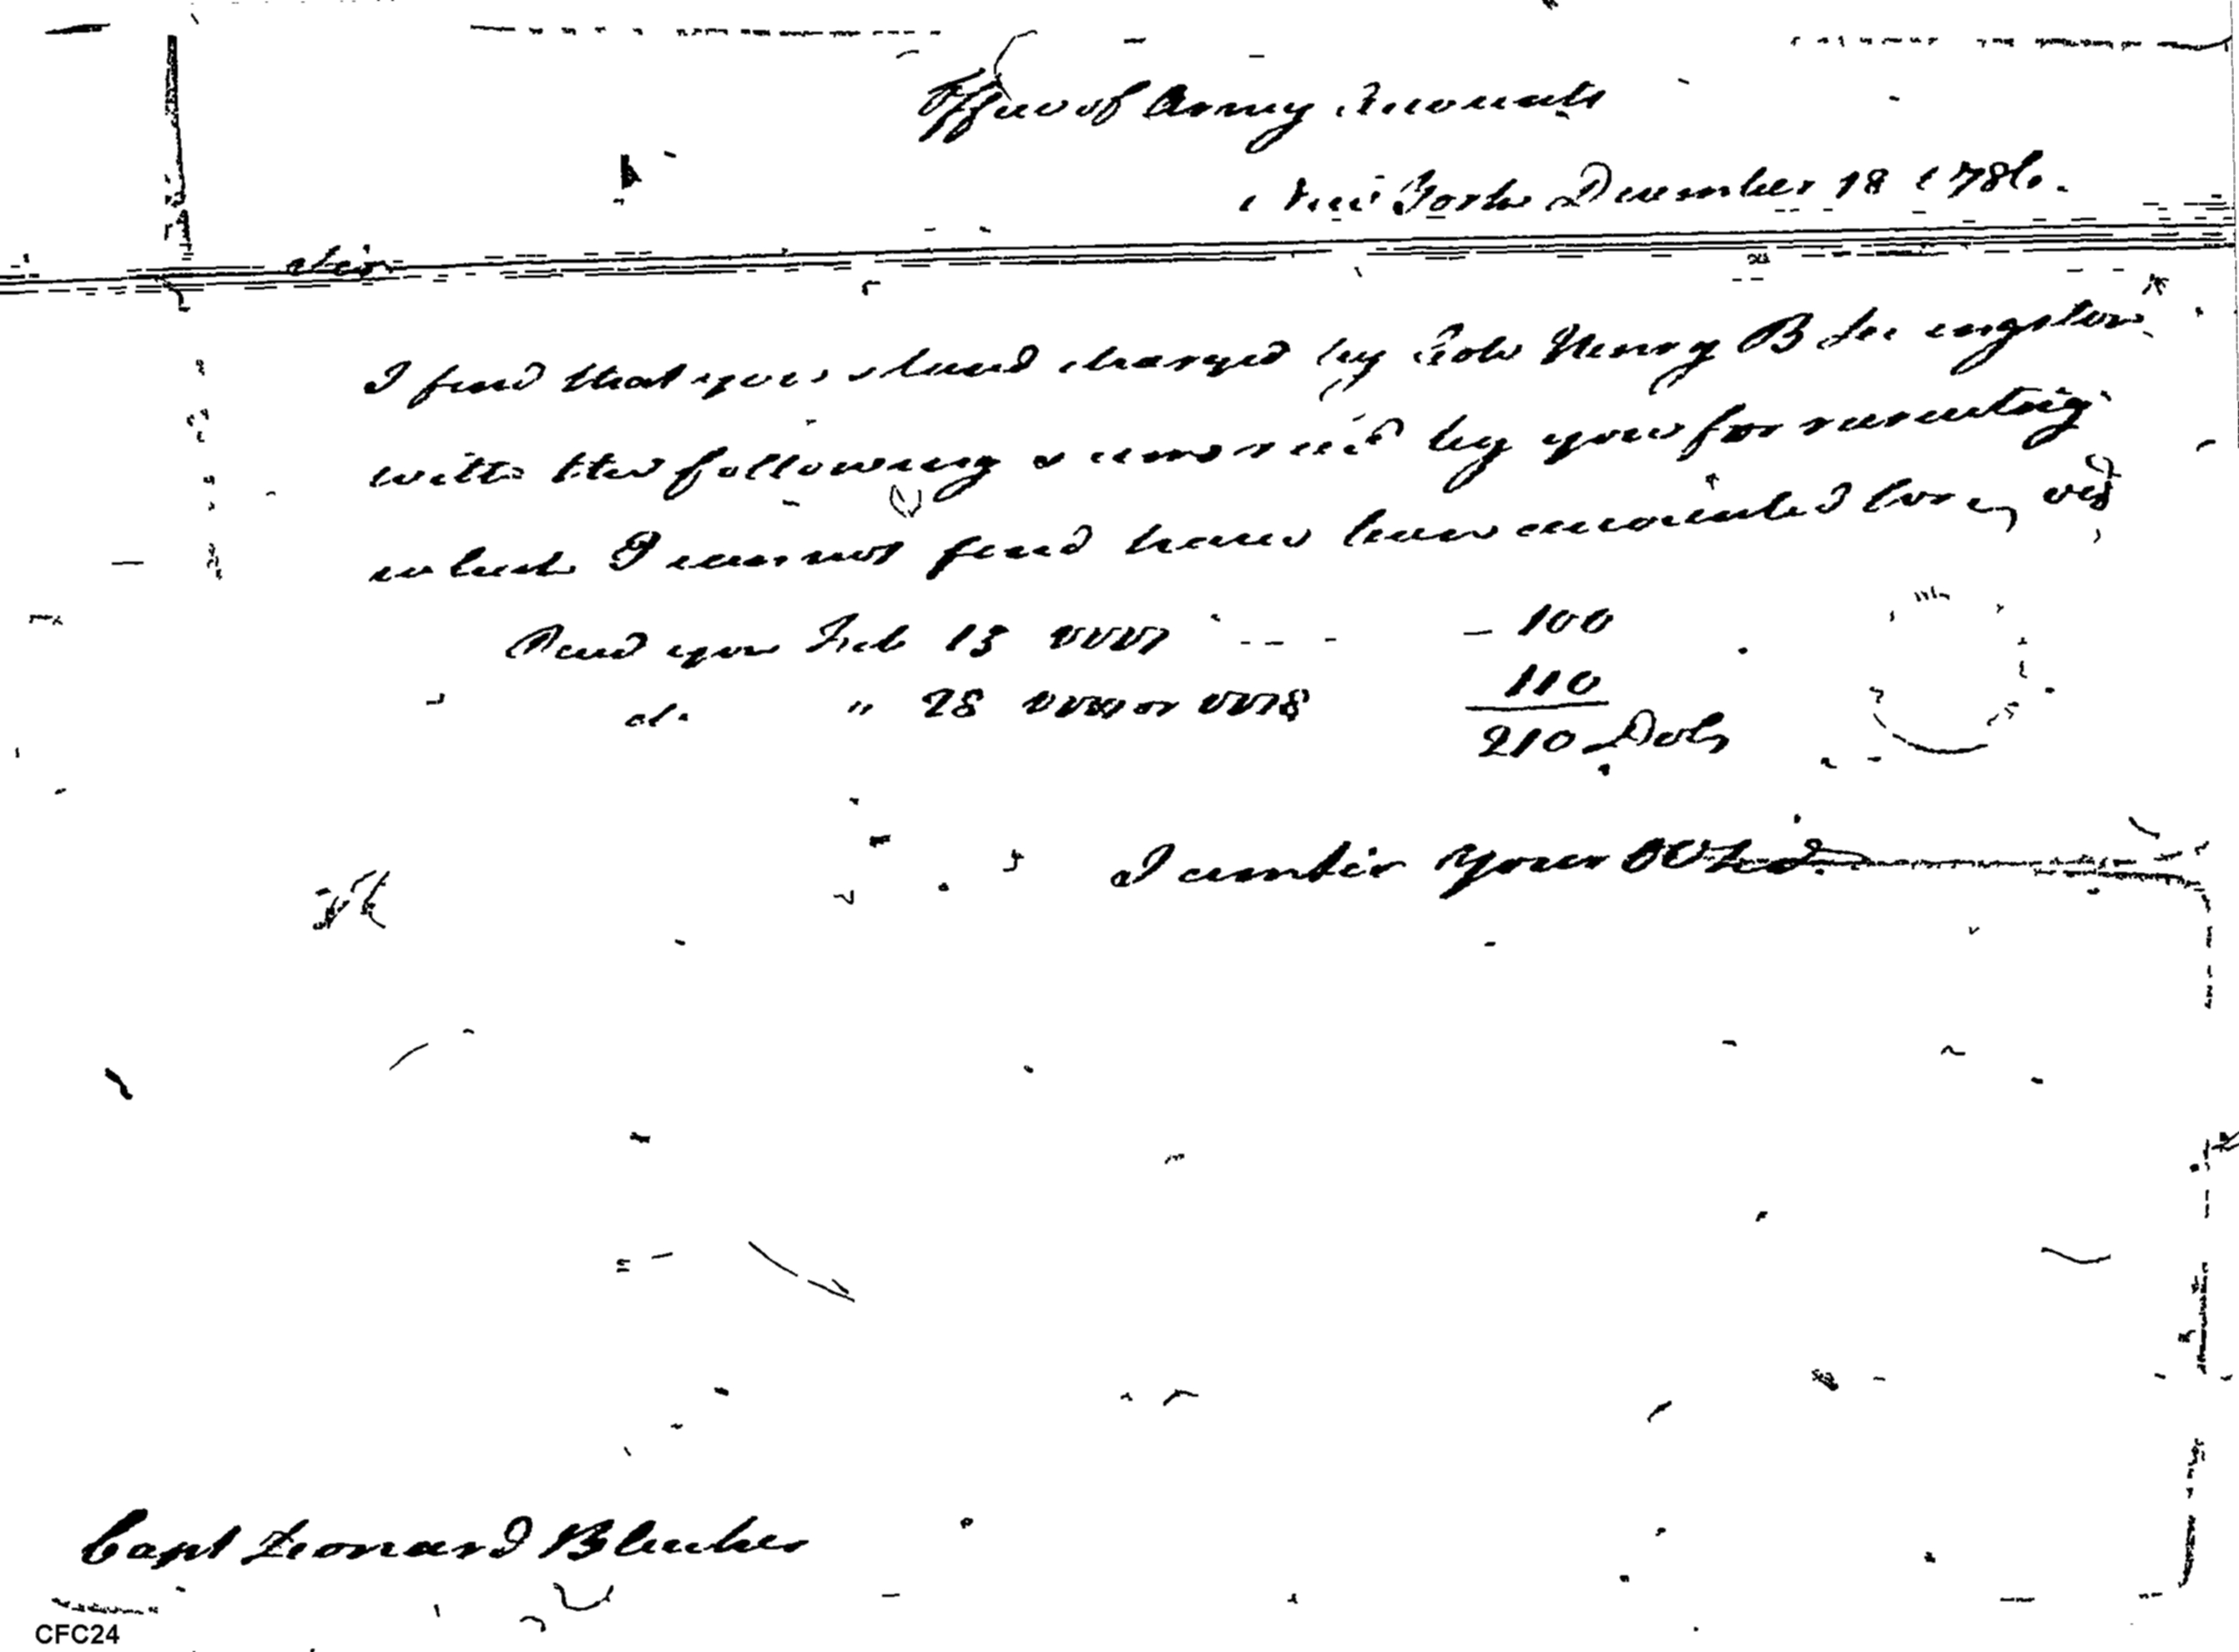 Office of Army Accounts
New York December 18 1786.
Sir
I find that you stand charged by Colo Henry B Livingston
with the following sums rec'd by you for recruiting
which I cannot find have been accounted for, viz
Paid you Feb 13 1777 - - - - 100
do. " 28 1777 or 1778 110
210 Dols
I am Sir Your Obt
Capt Leonard Bleeker
CFC24